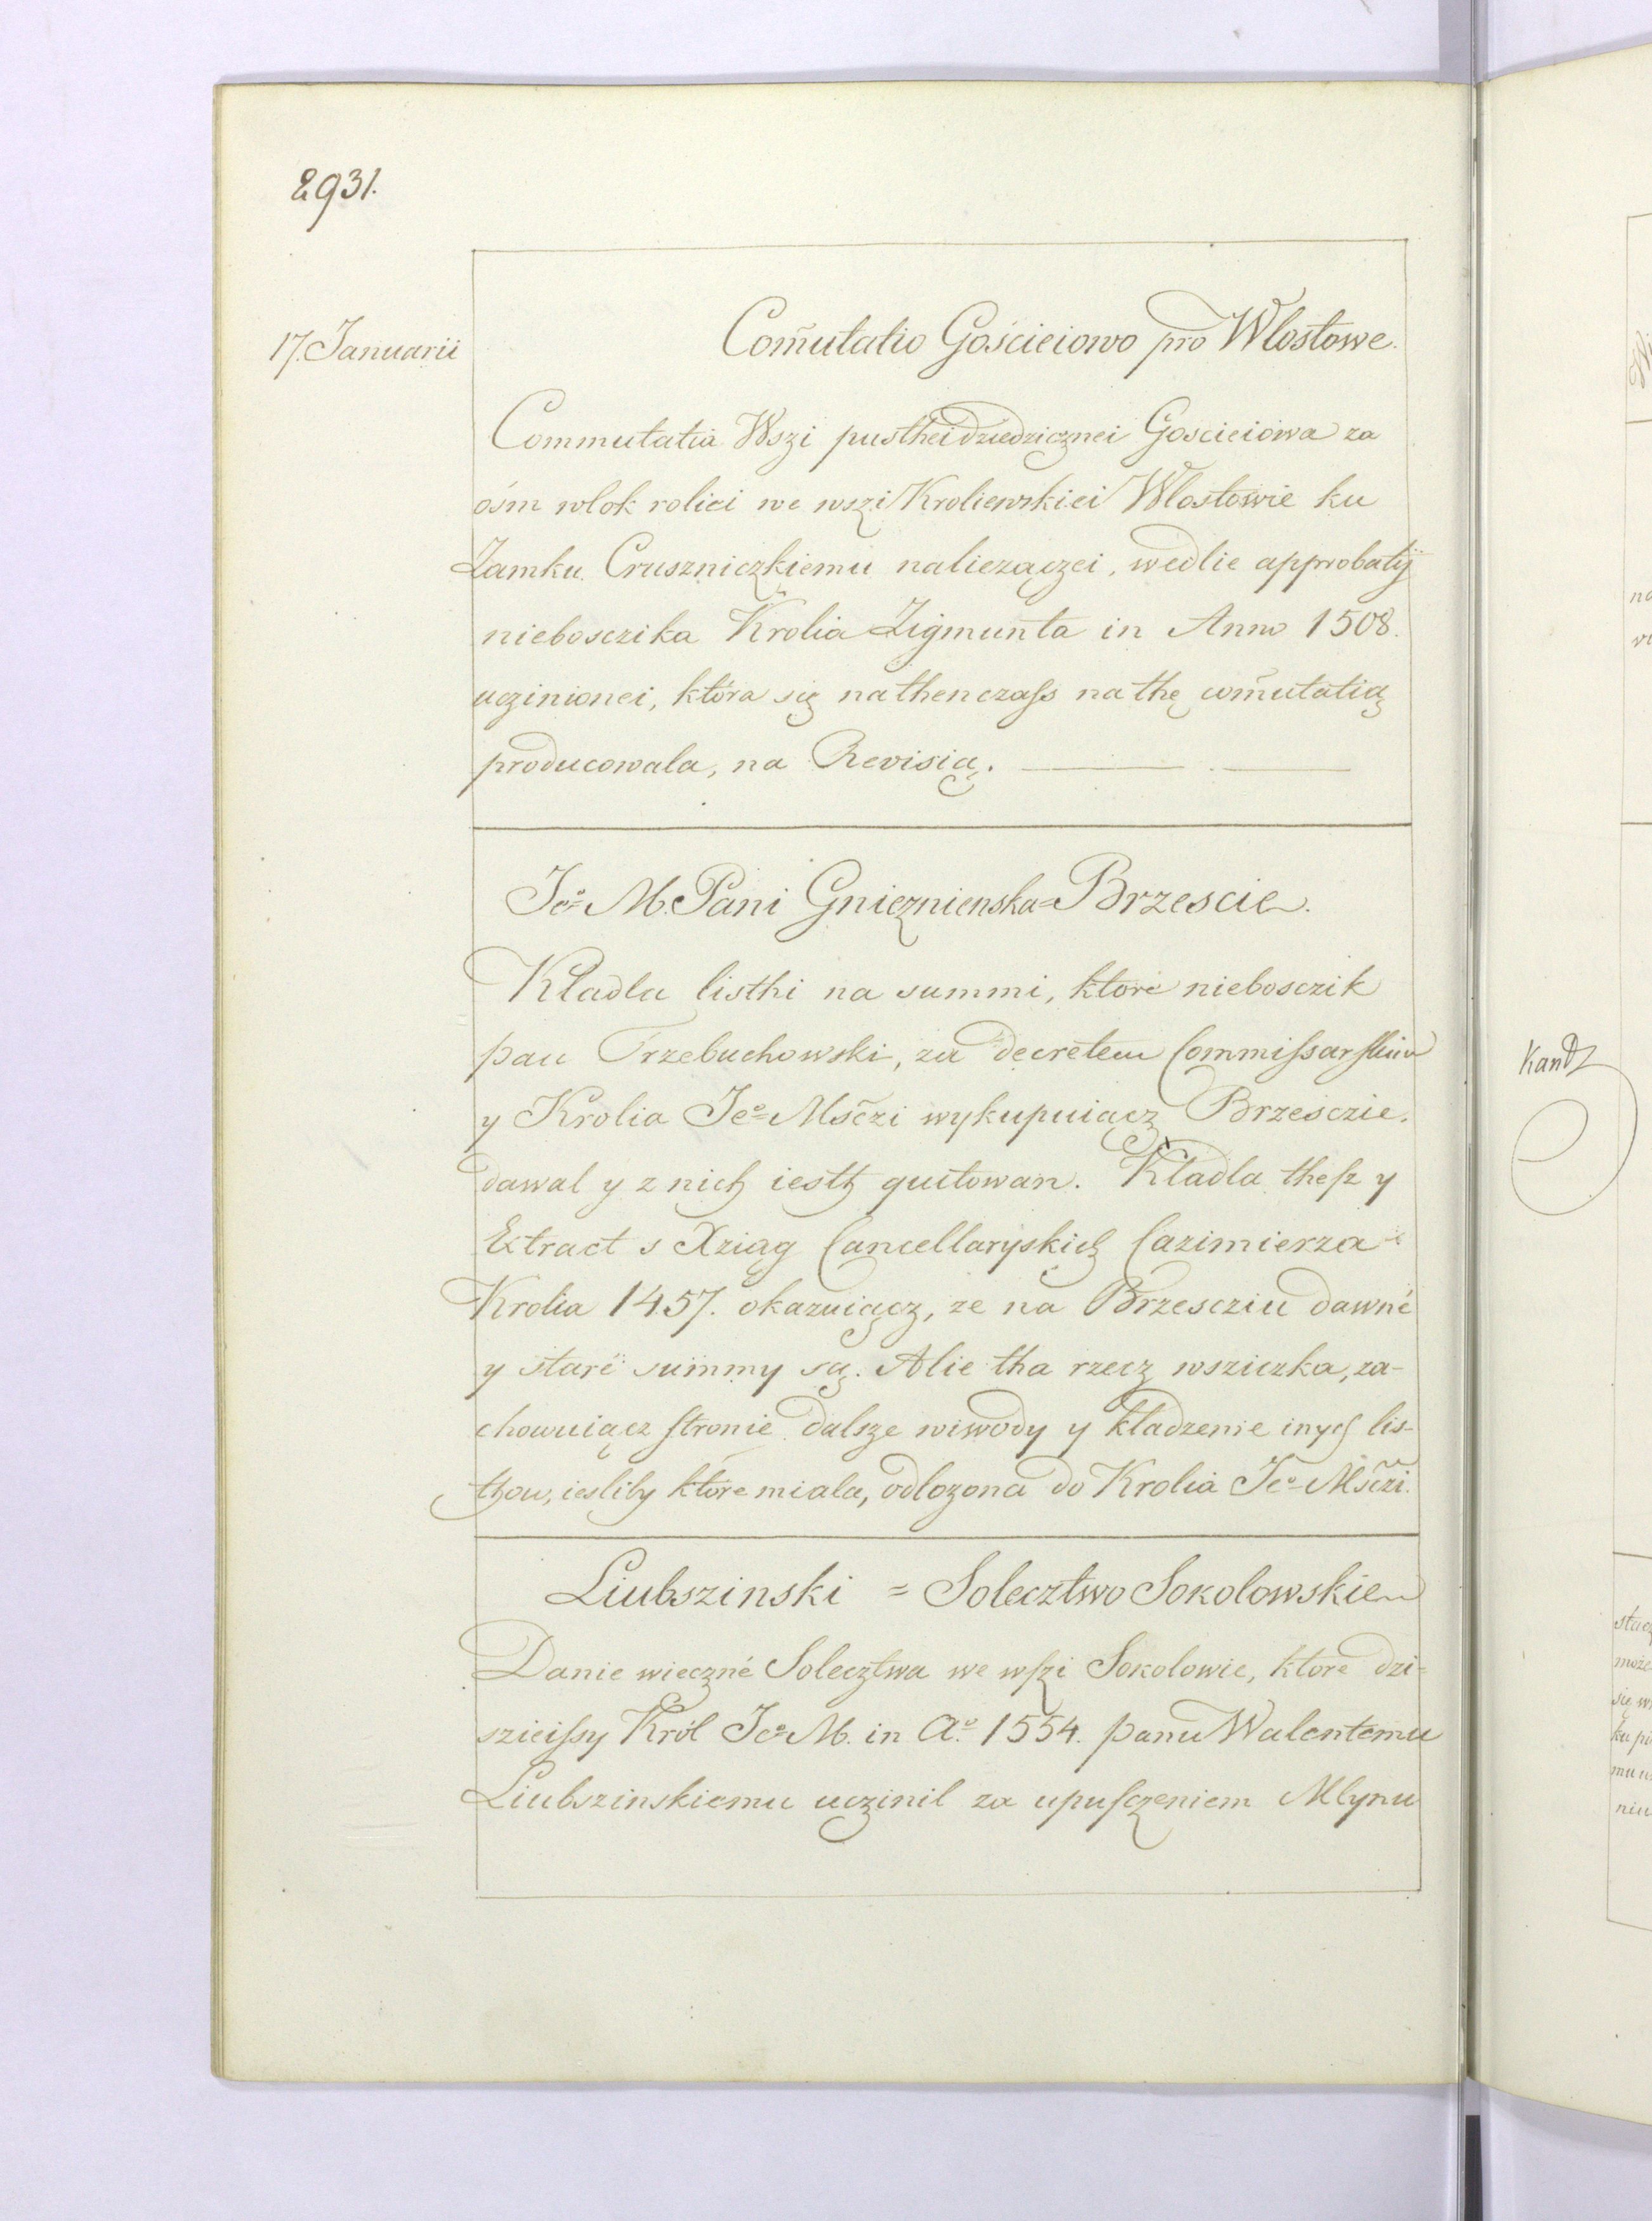 2931.
17. Januarii
Com̃utatio Gościeiowo pro Wlostowe.
Commutatia Wszi pusthei dziedzicznei Goscieiowa za
ośm wlok rolici we wszi Kroliewskiei Wlostowie ku
Zamku Cruszniczkiemu naliezaczei, wedlie approbatij
niebosczika Krolia Zigmunta in Anno 1508.
uczinionei, która się nathenczaſs na thę com̃utatią
producowala, na Revisią.
Jeo= M. Pani Gnieznienska = Brzescie.
Kładla listhi na summi, ktoré niebosczik
pan Trzebuchowski, za decretem Commiſsarſkim
y Krolia Jeo= Msczi wykupuiącz Brzesczie.
dawal y z nich iesth quitowan. Kładla theſz y
Extract s Xziąg Cancellaryskich Cazimierza
Krolia 1457. okazuiącz, ze na Brzescziu dawné
y staré summy są. Alie tha rzecz wsziczka, za-
chowuiącz ſtronie dalsze wiwody y kładzenie inych lis-
thow, iesliby które miala, odlozona do Krolia Jeo= Msczi.
Liubszinski = Solecztwo Sokolowskie
Danie wieczné Solecztwa we wſzi Sokolowie, ktore dzi=
szieiſsy Król Jeo= M. in Ao. 1554. panu Walentemu
Liubszinskiemu uczinil za upuſczeniem Mlynu
Kand